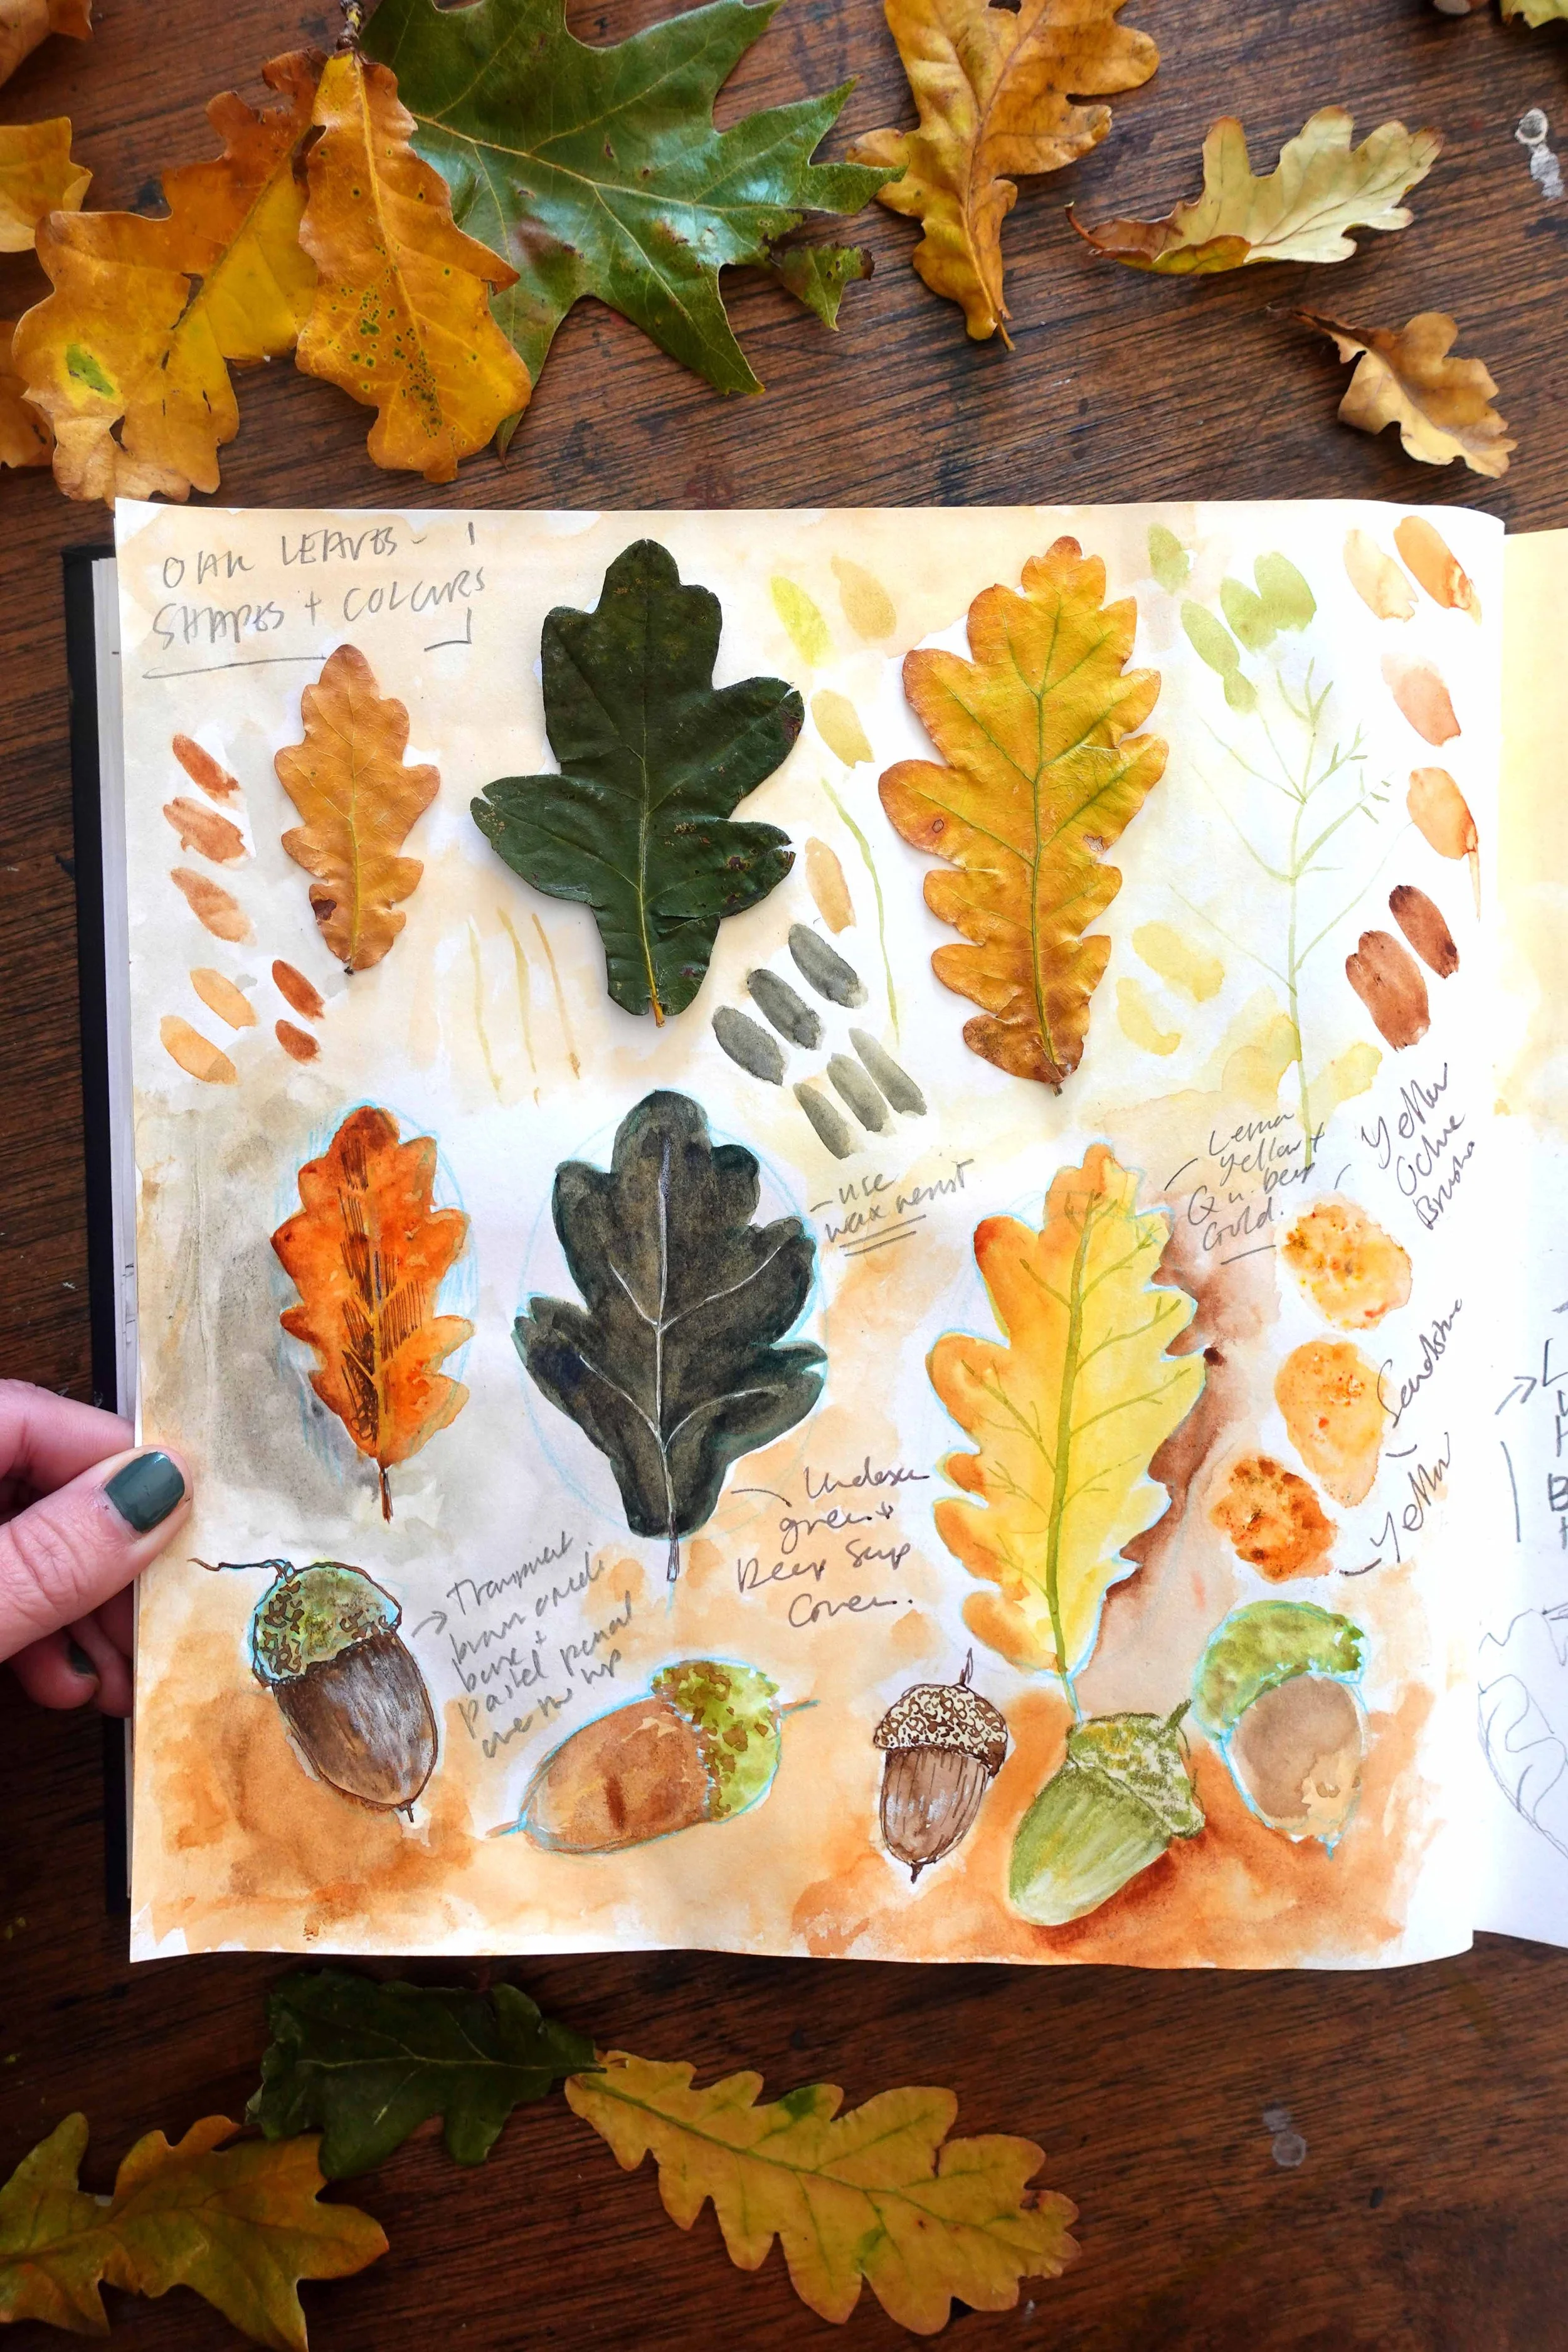 OAK LEAVES -
SHAPES + COLOURS
- use
wax resist
Lemon
Yellow +
Qu. deep
Gold.
Yellow
Ochre
Undersea
green +
Deep Sap
Green.
Transparent
brown oxide
+
pastel pencil
over the top
Yellow